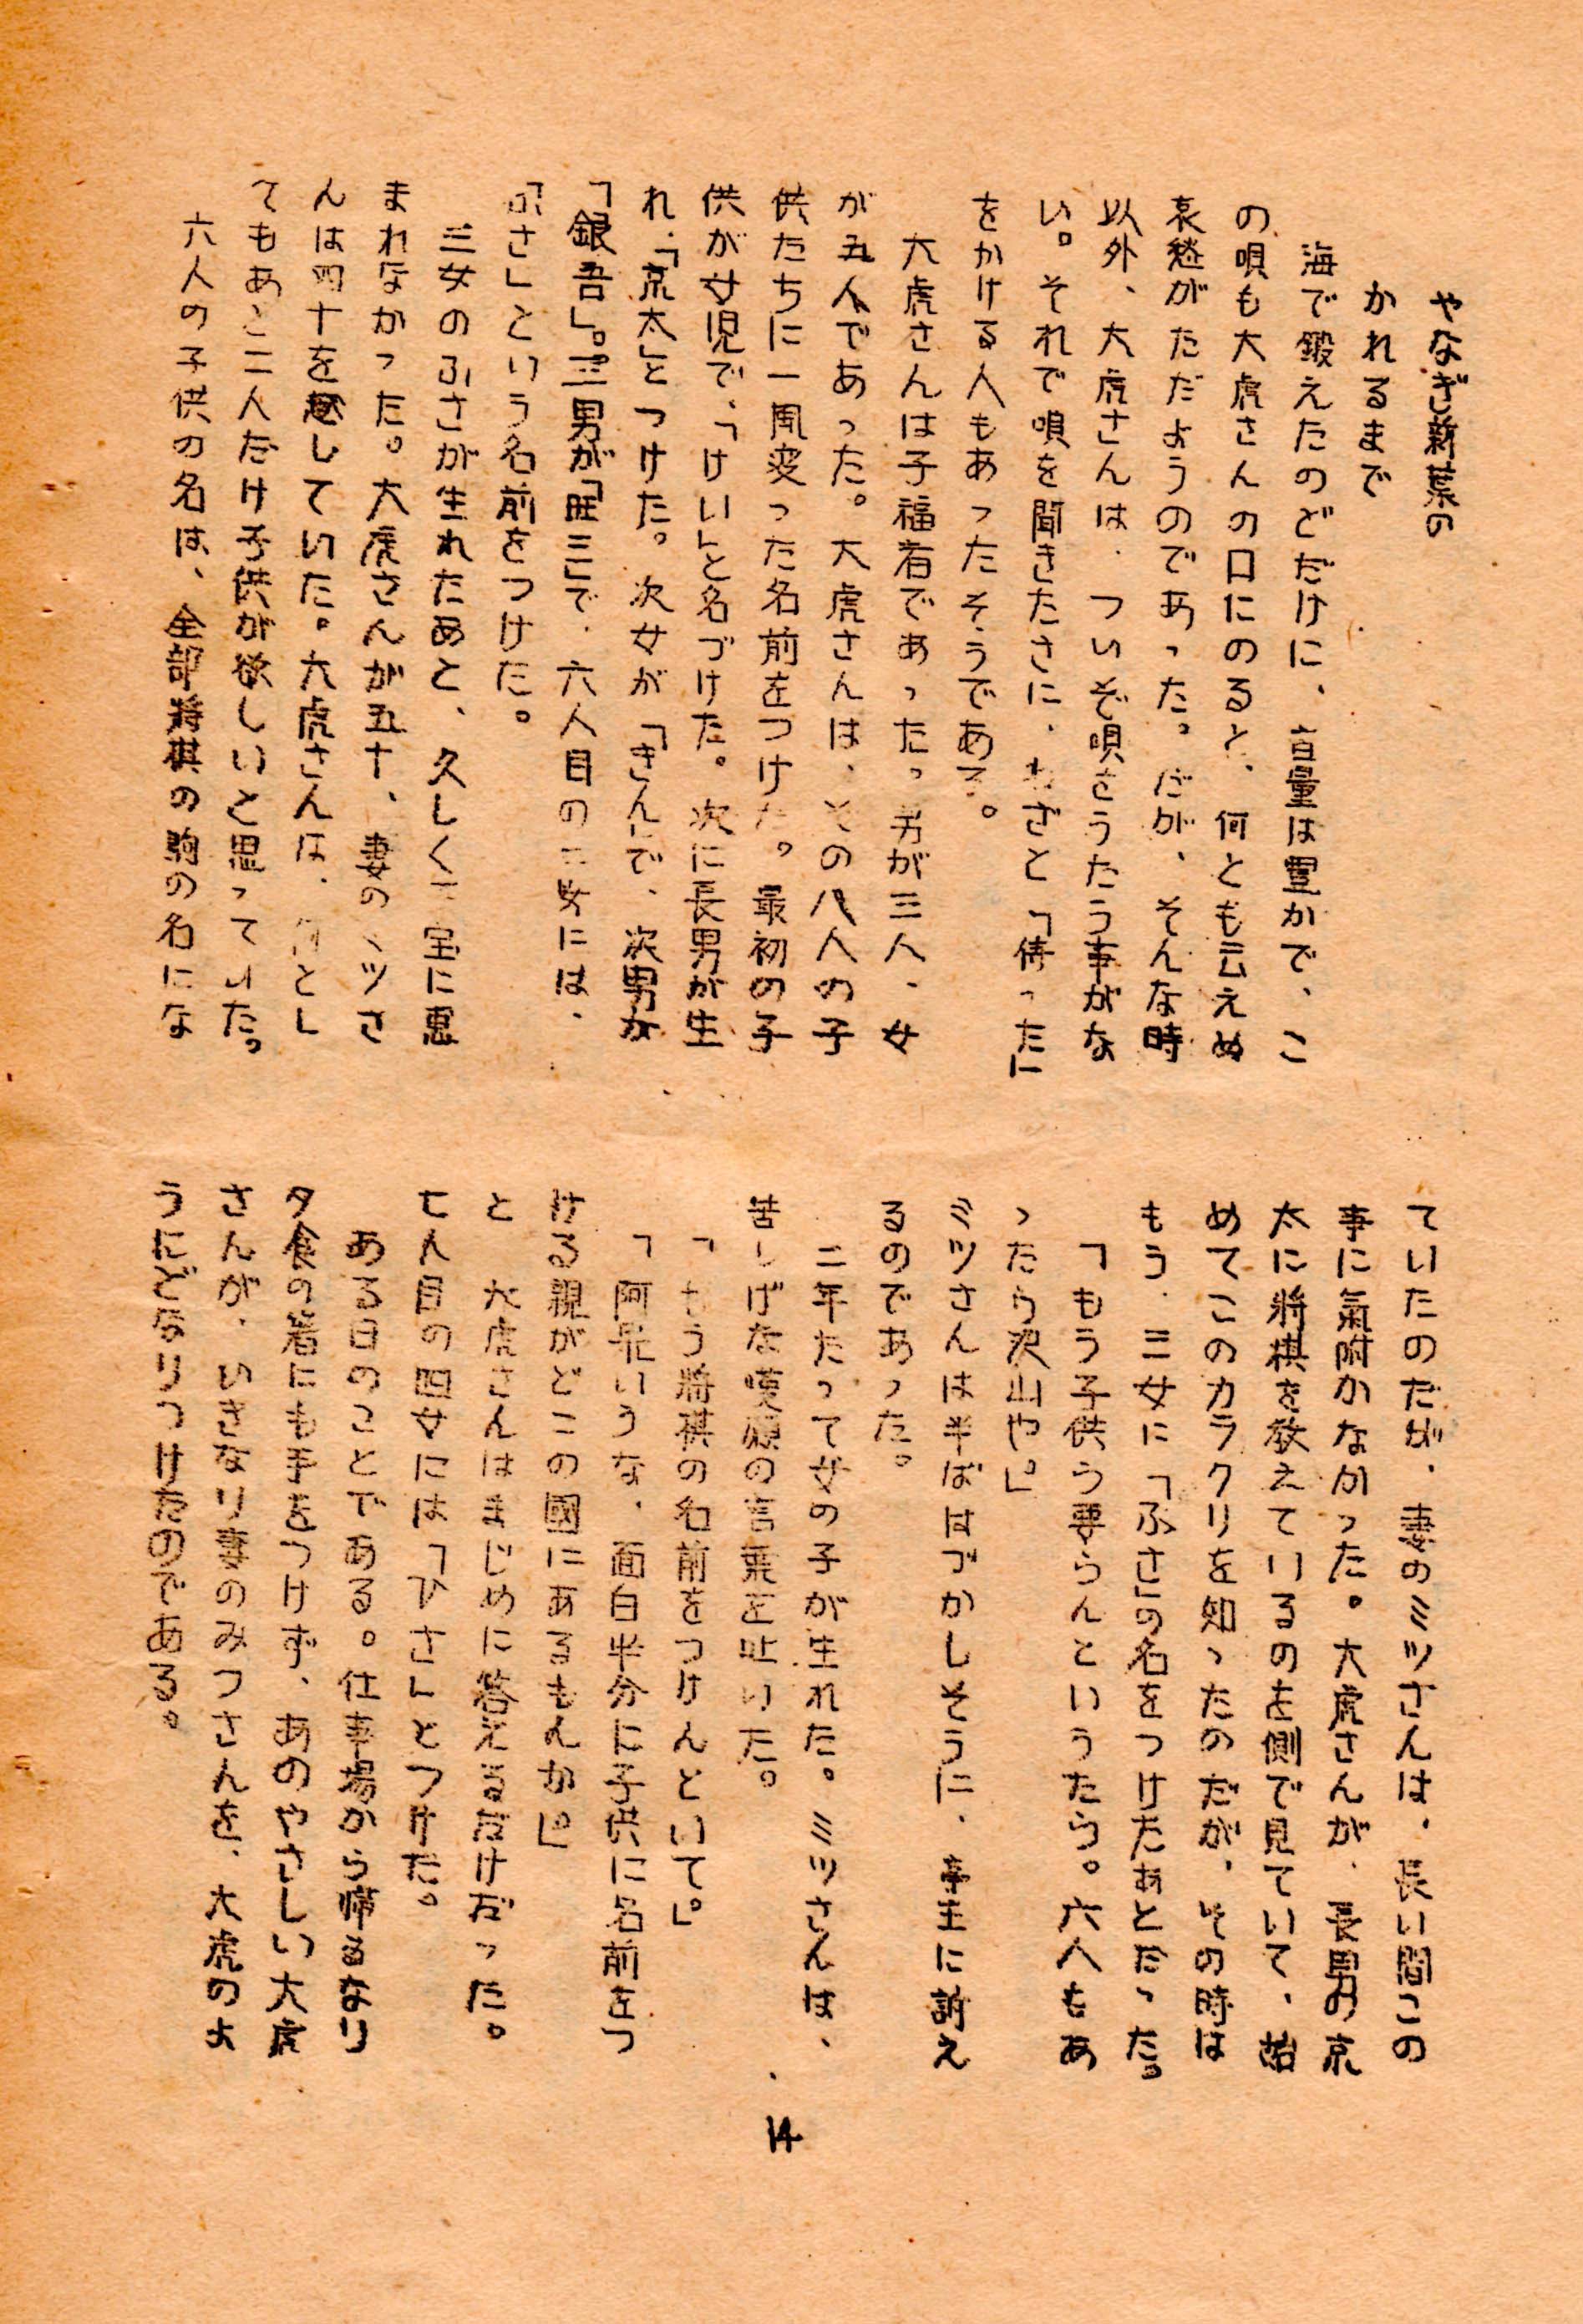 やなぎ新葉の
かれるまで
海で鍛えたのどだけに、音量は豊かで、こ
の唄も大虎さんの口にのると、何とも云えぬ
哀愁がただようのであった。だが、そんな時
以外、大虎さんは、ついぞ唄さうたう事がな
い。それで唄を聞きたさに、わざと「待った」
をかける人もあったそうである。
大虎さんは子福者であった。男が三人、女
が五人であった。大虎さんは、その八人の子
供たちに一風変った名前をつけた。最初の子
供が女児で、「けい」と名づけた。次に長男が生
れ、「京太」とつけた。次女が「きん」で、次男が
「銀吾」。三男が「旺三」で、六人目の三女には、
「ふさ」という名前をつけた。
三女のふさが生れたあと、久しく子宝に恵
まれなかった。大虎さんが五十、妻のミツさ
んは四十を越していた。大虎さんは、何とし
てもあと二人だけ子供が欲しいと思っていた。
六人の子供の名は、全部將棋の駒の名にな
ていたのだが、妻のミツさんは、長い間この
事に氣附かなかった。大虎さんが、長男の京
太に將棋を教えているのを側で見ていて、始
めてこのカラクリを知ったのだが、その時は
もう、三女に「ふさ」の名をつけたあとだった。
「もう子供ら要らんというたら。六人もあ
ったら沢山や。」
ミツさんは半ばはづかしそうに、亭主に訴え
るのであった。
二年たって女の子が生れた。ミツさんは、
苦しげな嘆願の言葉を吐いた。
「もう將棋の名前をつけんといて。」
「阿呆いうな、面白半分に子供に名前をつ
ける親がどこの國にあるもんか。」
と 大虎さんはまじめに答えるだけだった。
七人目の四女には「ひさ」とつけた。
ある日のことである。仕事場から帰るなり
夕食の箸にも手をつけず、あのやさしい大虎
さんが、いきなり妻のみつさんを、大虎の大
うにどなりつけたのである。
14